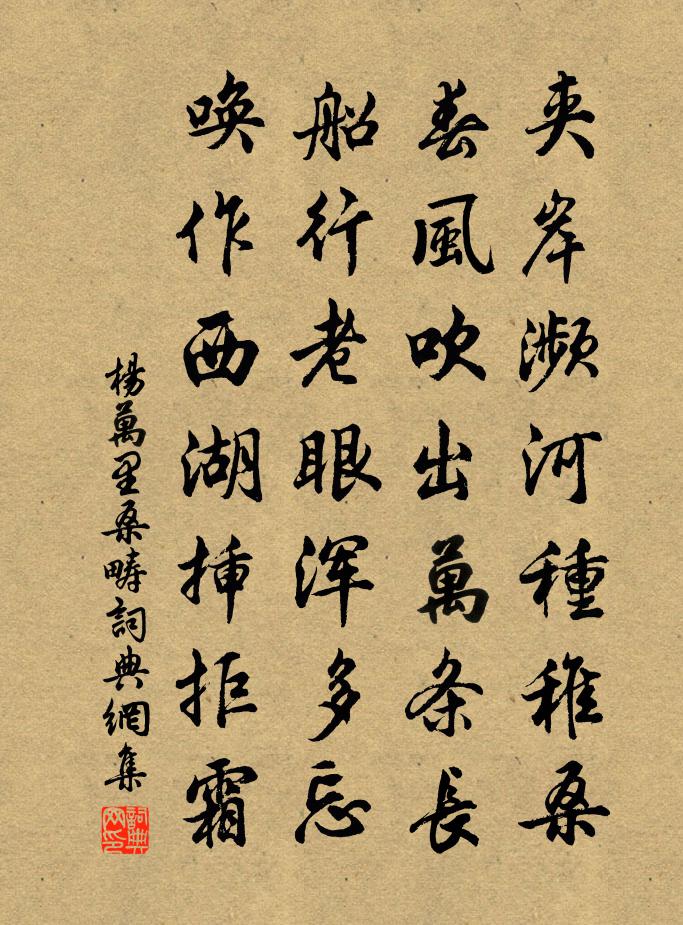 夹岸濒河種稚桑
春風吹出萬条長
船行老眼浑多忘
唤作西湖揷拒霜
楊萬里桑疇詞典網集
詞典網印